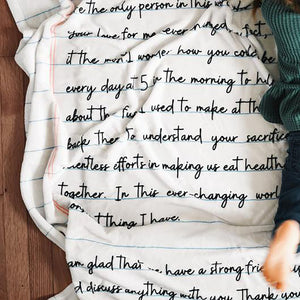 re the only person in this
your love for me ever
it the m I wonder how you could be
every day at 5 in the morning to
about the fu I used to make at th
back then To understand your sacrifice
entless efforts in making us eat health
together. In this ever-changing world
thing I have.
am glad that we have a strong
d discuss anything with you. Thank you